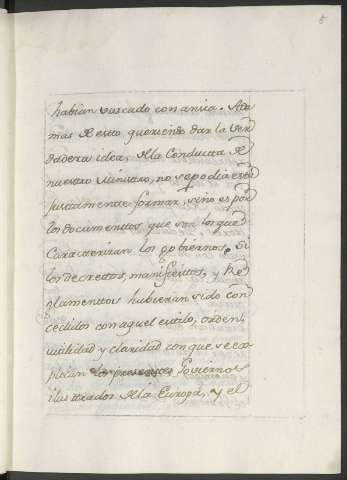 5
habian buscado con ancia. Ade
mas de esto, queriendo dar la ver
dadera idea, de la Conducta de
nuestro Ministro, no se podia esto
justamente formar, sino es por
los documentos, que son los que
Caracterizan los gobiernos. Si
los decretos, manifiestos, y Re
glamentos hubieran sido con
cedidos con aquel estilo, orden,
utilidad y claridad con que se ex
plican los presentes Goviernos
ilustrados de la Europa, y el